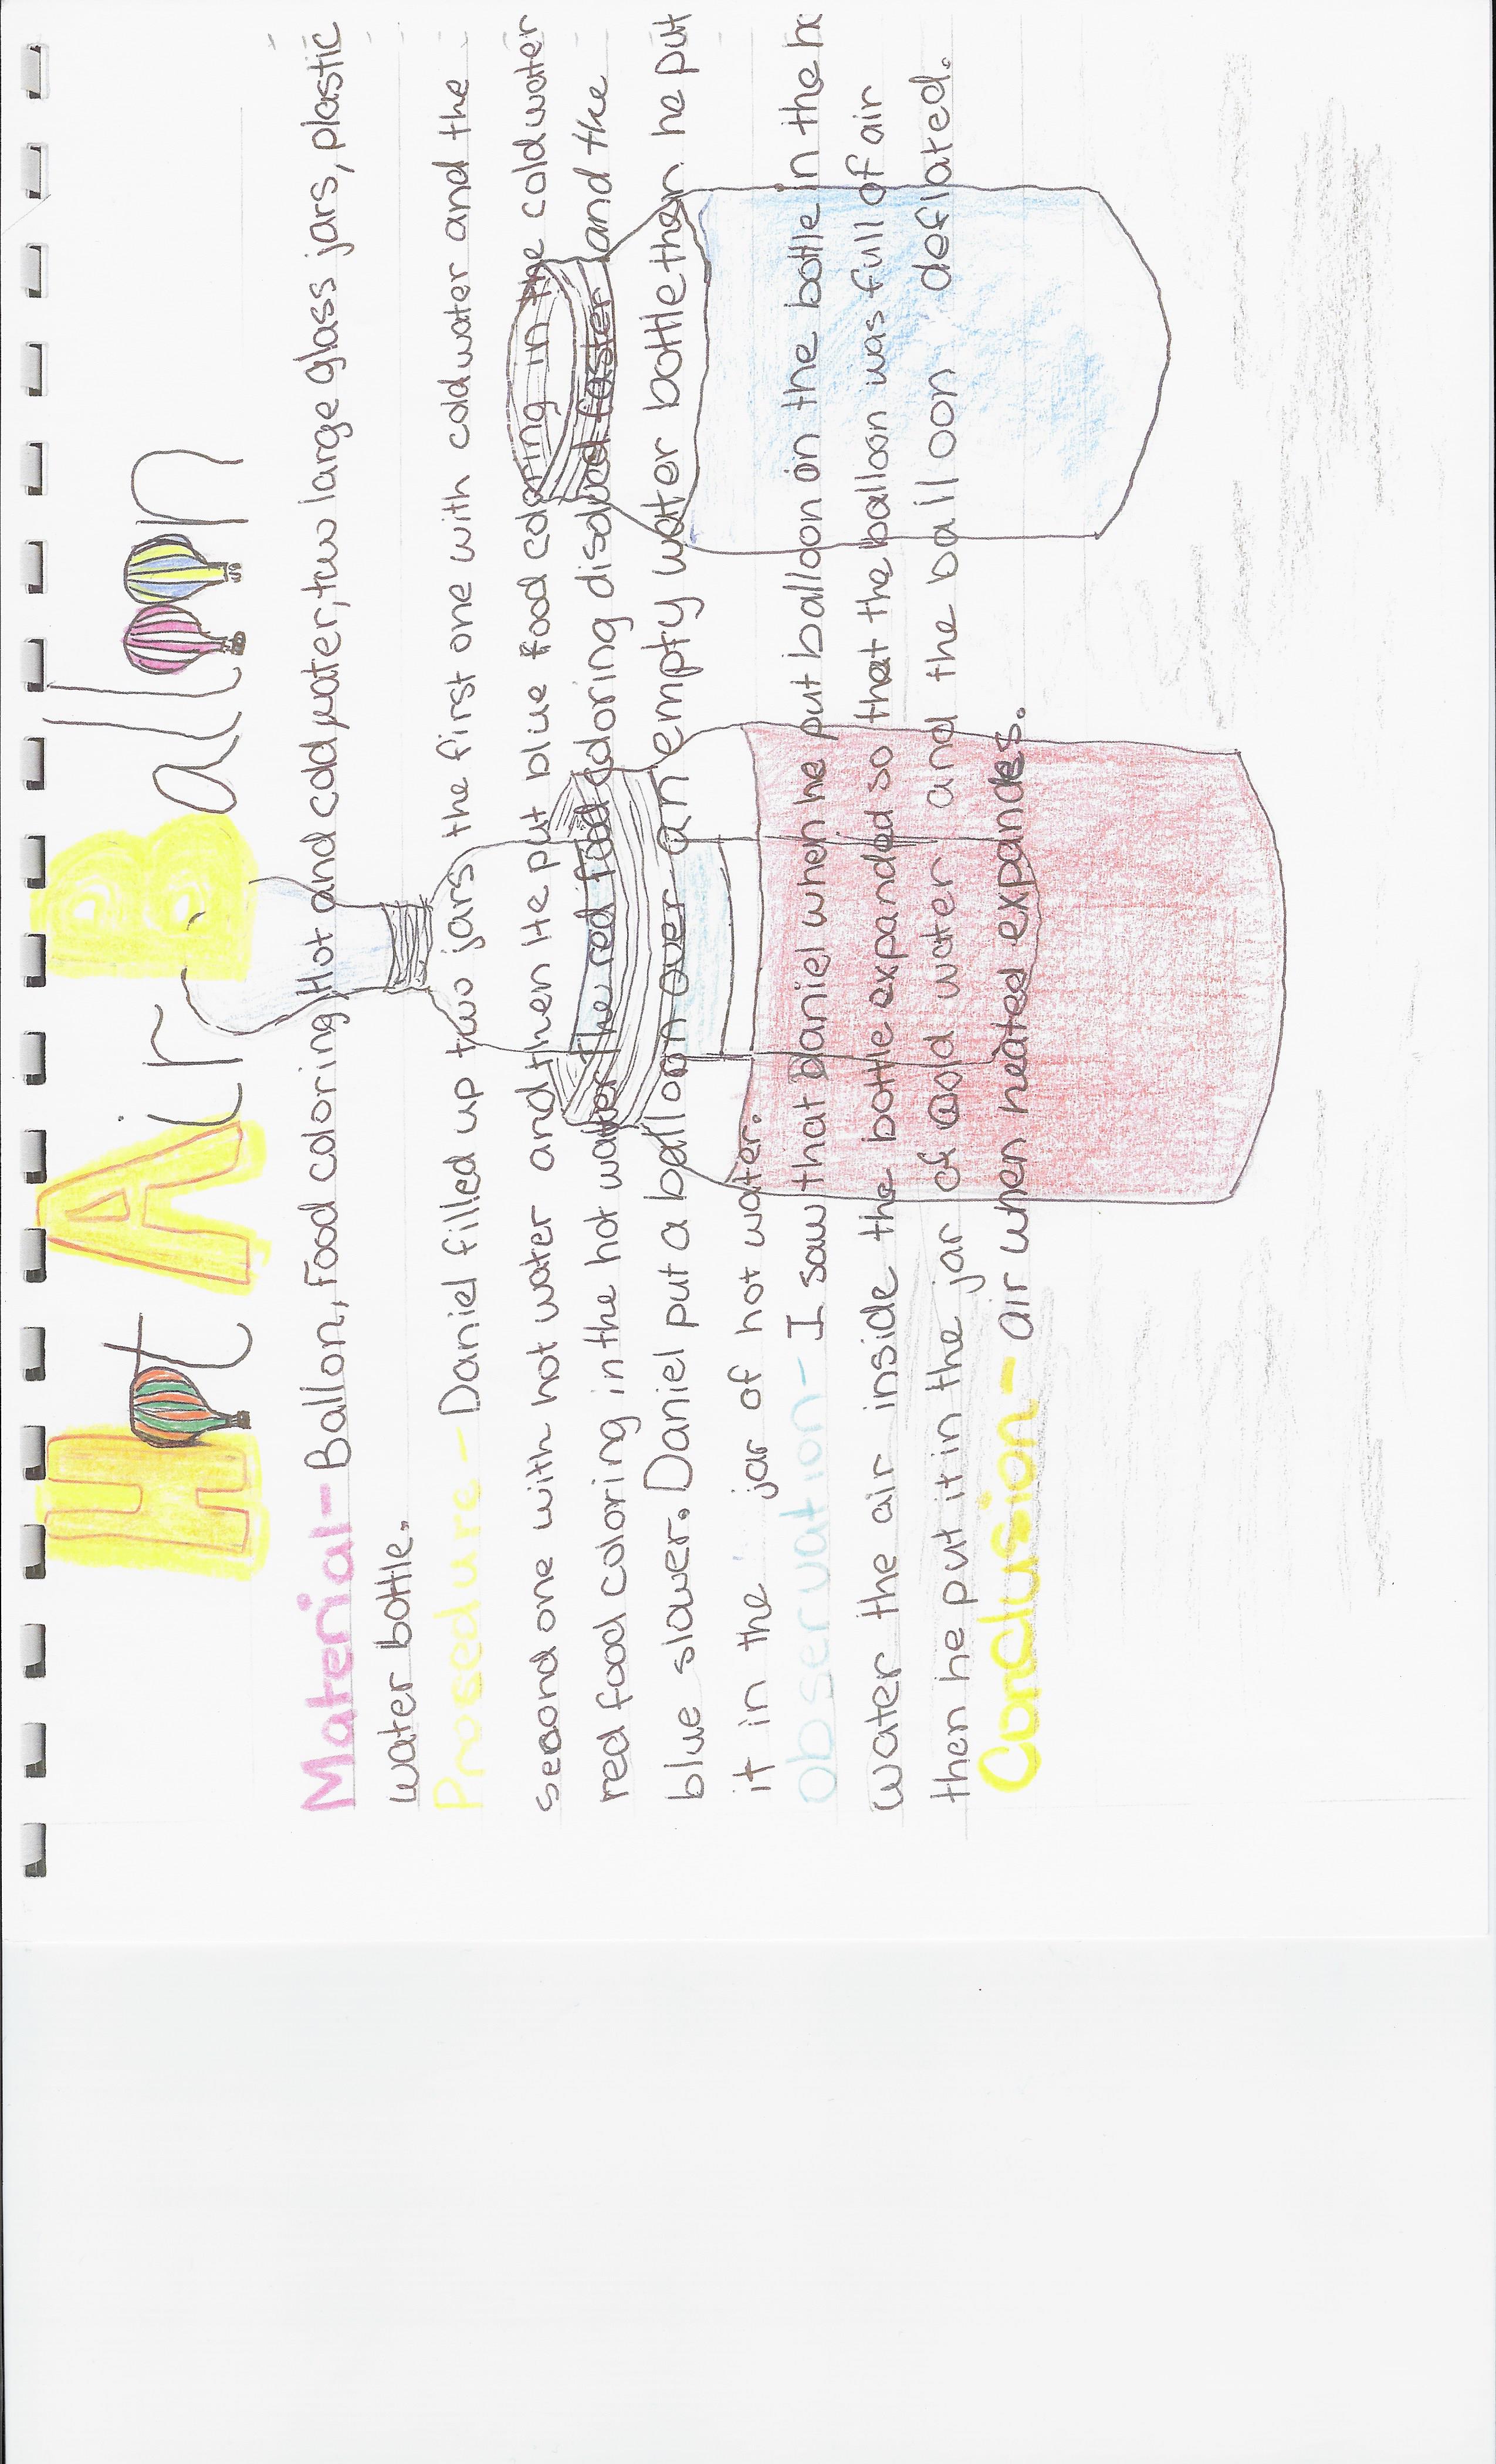 Hot Air Balloon
Material- Ballon, Food coloring, Hot and cold water, two large glass jars, plastic
water bottle.
Prosedure - Daniel filled up two jars the first one with cold water and the
second one with hot water and then He put blue food coloring in the cold water
red food coloring in the hot water. The red food coloring disolved faster and the
blue slower. Daniel put a balloon over an empty water bottle then he put
it in the jar of hot water.
observation- I saw that Daniel when he put balloon on the bottle in the
water the air inside the bottle expanded so that the balloon was full of air
then he put it in the jar of cold water and the balloon deflated.
Conclusion - air when heated expands.